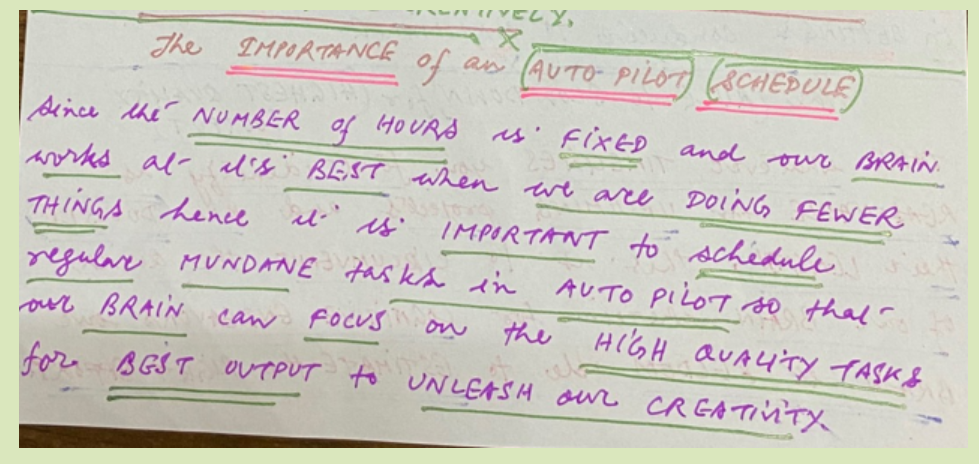 The IMPORTANCE of an AUTO PILOT SCHEDULE
Since the NUMBER of HOURS is FIXED and our BRAIN
works at it's BEST when we are DOING FEWER
THINGS hence it is IMPORTANT to schedule
regular MUNDANE tasks in AUTO PILOT so that
our BRAIN can FOCUS on the HIGH QUALITY TASKS
for BEST OUTPUT to UNLEASH our CREATIVITY.